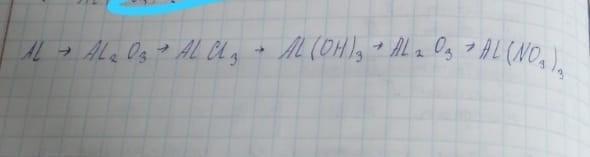 Al → Al₂O₃ → AlCl₃ → Al(OH)₃ → Al₂O₃ → Al(NO₃)₃